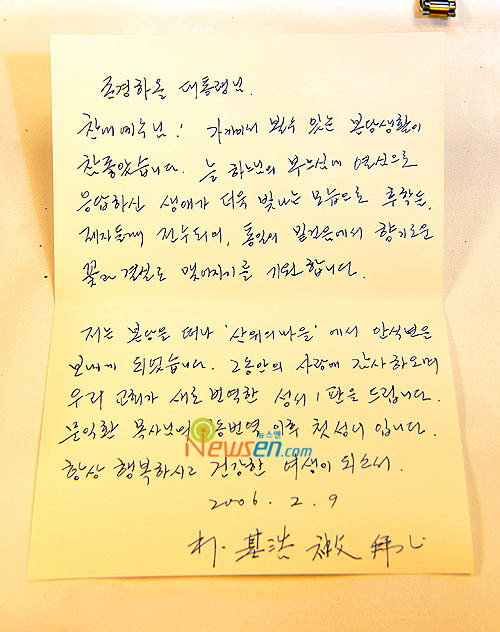 존경하올 대통령님.
찬미예수님! 가까이서 뵐수 있는 본당생활이
참 좋았습니다. 늘 하느님의 부르심에 열심으로
응답하신 생애가 더욱 빛나는 모습으로 후학들,
제자들께 전수되어, 통일의 밑거름에서 향기로운
꽃과 결실로 맺어지기를 기원합니다.
저는 본당을 떠나 '산위의마을'에서 안식년을
보내게 되었습니다. 그동안의 사랑에 감사하오며
우리 교회가 새로 번역한 성서 1판을 드립니다.
문익환 목사님의 공동번역 이후 첫 성서입니다.
항상 행복하시고 건강한 여생이 되소서.
2006. 2. 9
朴·基浩
뉴스엔
Newsen.com